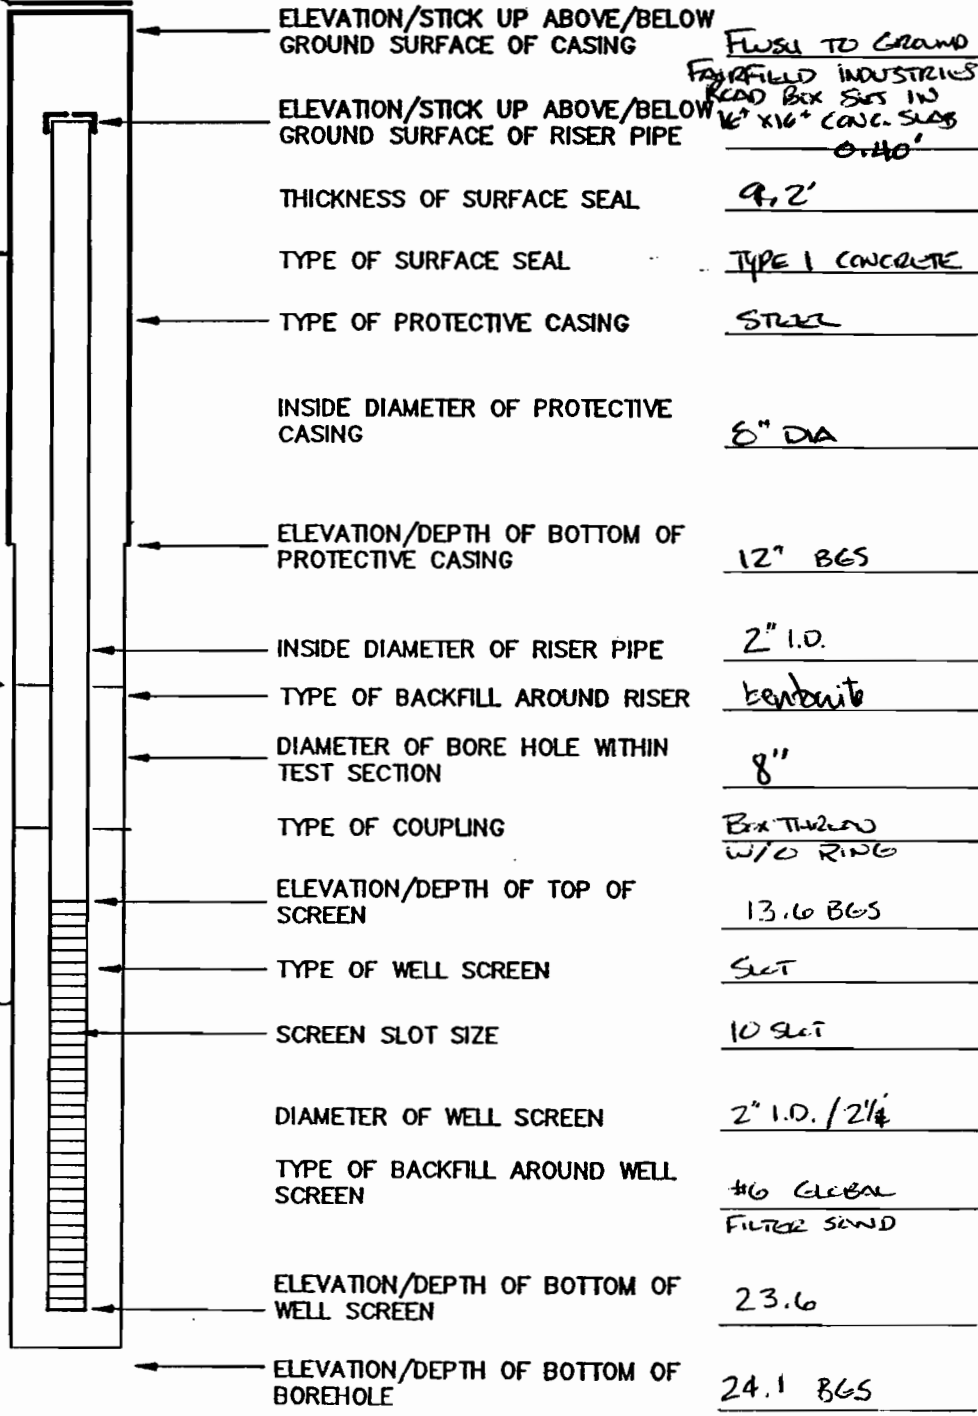 ELEVATION/STICK UP ABOVE/BELOW
GROUND SURFACE OF CASING
FLUSH TO GROUND
FAIRFIELD INDUSTRIES
ROAD BOX SET IN
16" X16" CONC. SLAB
ELEVATION/STICK UP ABOVE/BELOW
GROUND SURFACE OF RISER PIPE
0.40'
THICKNESS OF SURFACE SEAL
9.2'
TYPE OF SURFACE SEAL
TYPE 1 CONCRETE
TYPE OF PROTECTIVE CASING
STEEL
INSIDE DIAMETER OF PROTECTIVE
CASING
8" DIA
ELEVATION/DEPTH OF BOTTOM OF
PROTECTIVE CASING
12" BGS
INSIDE DIAMETER OF RISER PIPE
2" I.D.
TYPE OF BACKFILL AROUND RISER
bentonite
DIAMETER OF BORE HOLE WITHIN
TEST SECTION
8"
TYPE OF COUPLING
BOX THREAD
W/O RING
ELEVATION/DEPTH OF TOP OF
SCREEN
13.6 BGS
TYPE OF WELL SCREEN
SLOT
SCREEN SLOT SIZE
10 SLOT
DIAMETER OF WELL SCREEN
2" I.D. / 2 1/4
TYPE OF BACKFILL AROUND WELL
SCREEN
#6 GLOBAL
FILTER SAND
ELEVATION/DEPTH OF BOTTOM OF
WELL SCREEN
23.6
ELEVATION/DEPTH OF BOTTOM OF
BOREHOLE
24.1 BGS